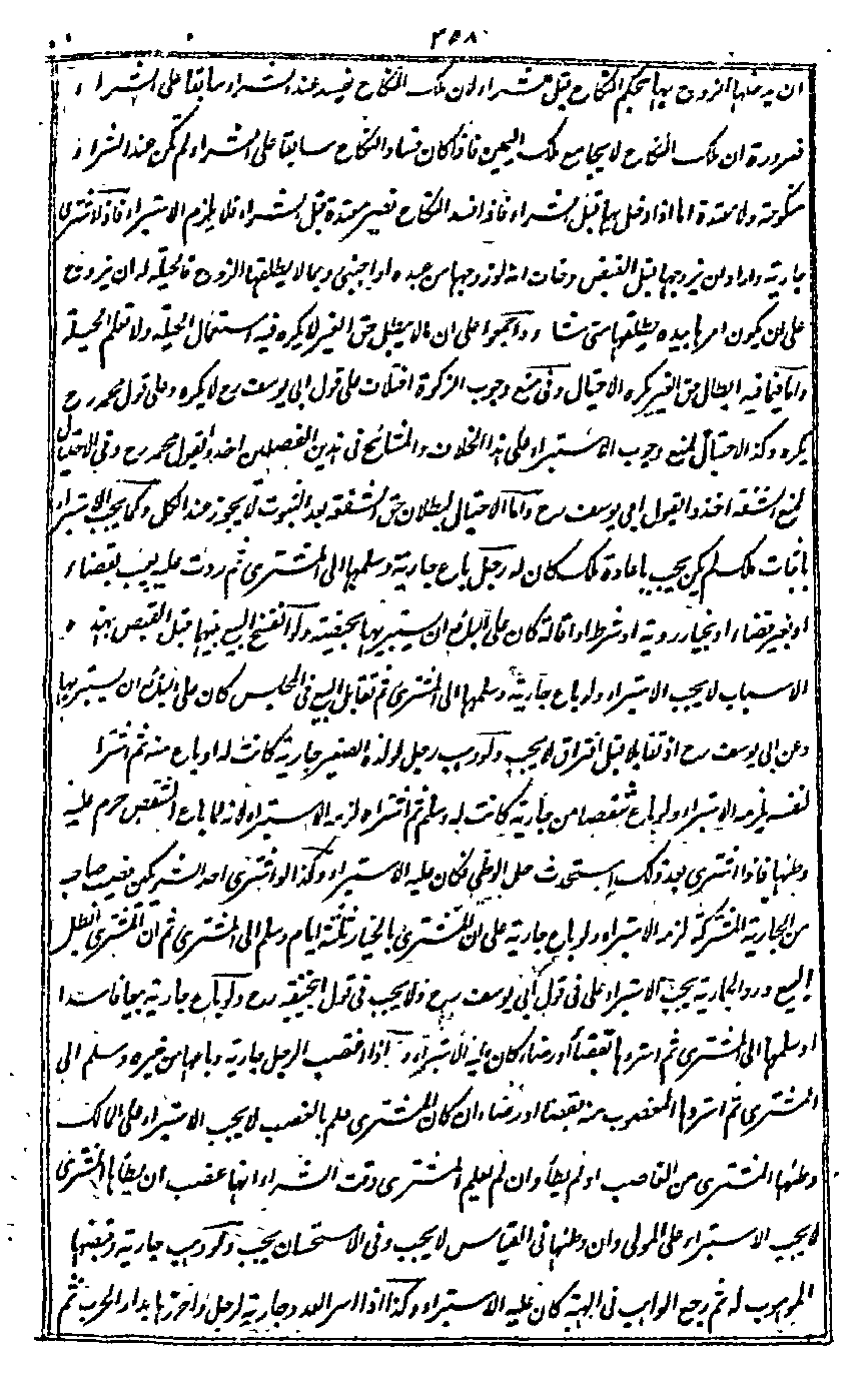 ٣٥٨
ان يدخلها الزوج بها بحكم النكاح قبل الشراء لان ملك النكاح يفسد عند الشراء سابقا على الشراء
ضرورة ان ملك النكاح لا يجامع ملك اليمين فاذا كان فساد النكاح سابقا على الشراء لم تكن عند الشراء
منكوحة ولا معتدة اما اذا دخل بها قبل الشراء فاذا فسد النكاح تصير معتدة قبل الشراء فلا يلزم الاستبراء فاذا اشترى
جارية واراد ان يزوجها قبل القبض وخاف انه لو زوجها من عبده او اجنبي ربما لا يطلقها الزوج فالحيلة له ان يزوج
على ان يكون امرها بيده يطلقها متى شاء واجمعوا على ان ما لا يبطل حق الغير لا يكره فيه استعمال الحيلة ولا تعلم الحيلة
واما فيما فيه ابطال حق الغير يكره الاحتيال وفي منع وجوب الزكوة اختلاف على قول ابي يوسف رح لا يكره وعلى قول محمد رح
يكره وكذا الاحتيال لمنع وجوب الاستبراء على هذا الخلاف والمشائخ في هذين الفصلين اخذوا بقول محمد رح وفي الاحتيال
لمنع الشفعة اخذوا بقول ابي يوسف رح واما الاحتيال لبطلان حق الشفعة بعد الثبوت لا يجوز عند الكل وكما يجب الاستبراء
باثبات ملك لم يكن يجب باعادة ملك كان له رجل باع جارية وسلمها الى المشترى ثم ردت عليه بعيب بقضاء
او بغير قضاء او بخيار روية او شرط او اقالة كان على البائع ان يستبريها بحيضة ولو انفسخ البيع فيها قبل القبض بهذه
الاسباب لا يجب الاستبراء ولو باع جارية وسلمها الى المشترى ثم تقايلا البيع في المجلس كان على البائع ان يستبريها
وعن ابي يوسف رح اذا تقايلا قبل افتراق لا يجب ولو وهب رجل لولده الصغير جارية كانت له او باع منه ثم اشترا
لنفسه يلزمه الاستبراء ولو باع شقصا من جارية كانت له وسلم ثم اشتراه لزمه الاستبراء لانه لما باع الشقص حرم عليه
وطئها فاذا اشترى بعد ذلك استحدث حل الوطي فكان عليه الاستبراء وكذا لو اشترى احد الشريكين نصيب صاحبه
من الجارية المشتركة لزمه الاستبراء ولو باع جارية على ان المشترى بالخيار ثلثة ايام وسلم الى المشترى ثم ان المشترى ابطل
البيع ورد الجارية يجب الاستبراء على في قول ابي يوسف رح ولا يجب في قول ابي حنيفة رح ولو باع جارية بيعا فاسدا
وسلمها الى المشترى ثم استردها بقضاء او رضاء كان عليه الاستبراء واذا غصب الرجل جارية وباعها من غيره وسلم الى
المشترى ثم استردها المغصوب منه بقضاء او رضاء ان كان المشترى علم بالغصب لا يجب الاستبراء على المالك
وطئها المشترى من الغاصب او لم يطأ وان لم يعلم المشترى وقت الشراء انها غصب ان يطأها المشترى
لا يجب الاستبراء على المولى وان وطئها في القياس لا يجب وفي الاستحسان يجب ولو وهب جارية وقبضها
الموهوب له ثم رجع الواهب في الهبة كان عليه الاستبراء وكذا اذا اسر العدو جارية لرجل واحرزها بدار الحرب ثم